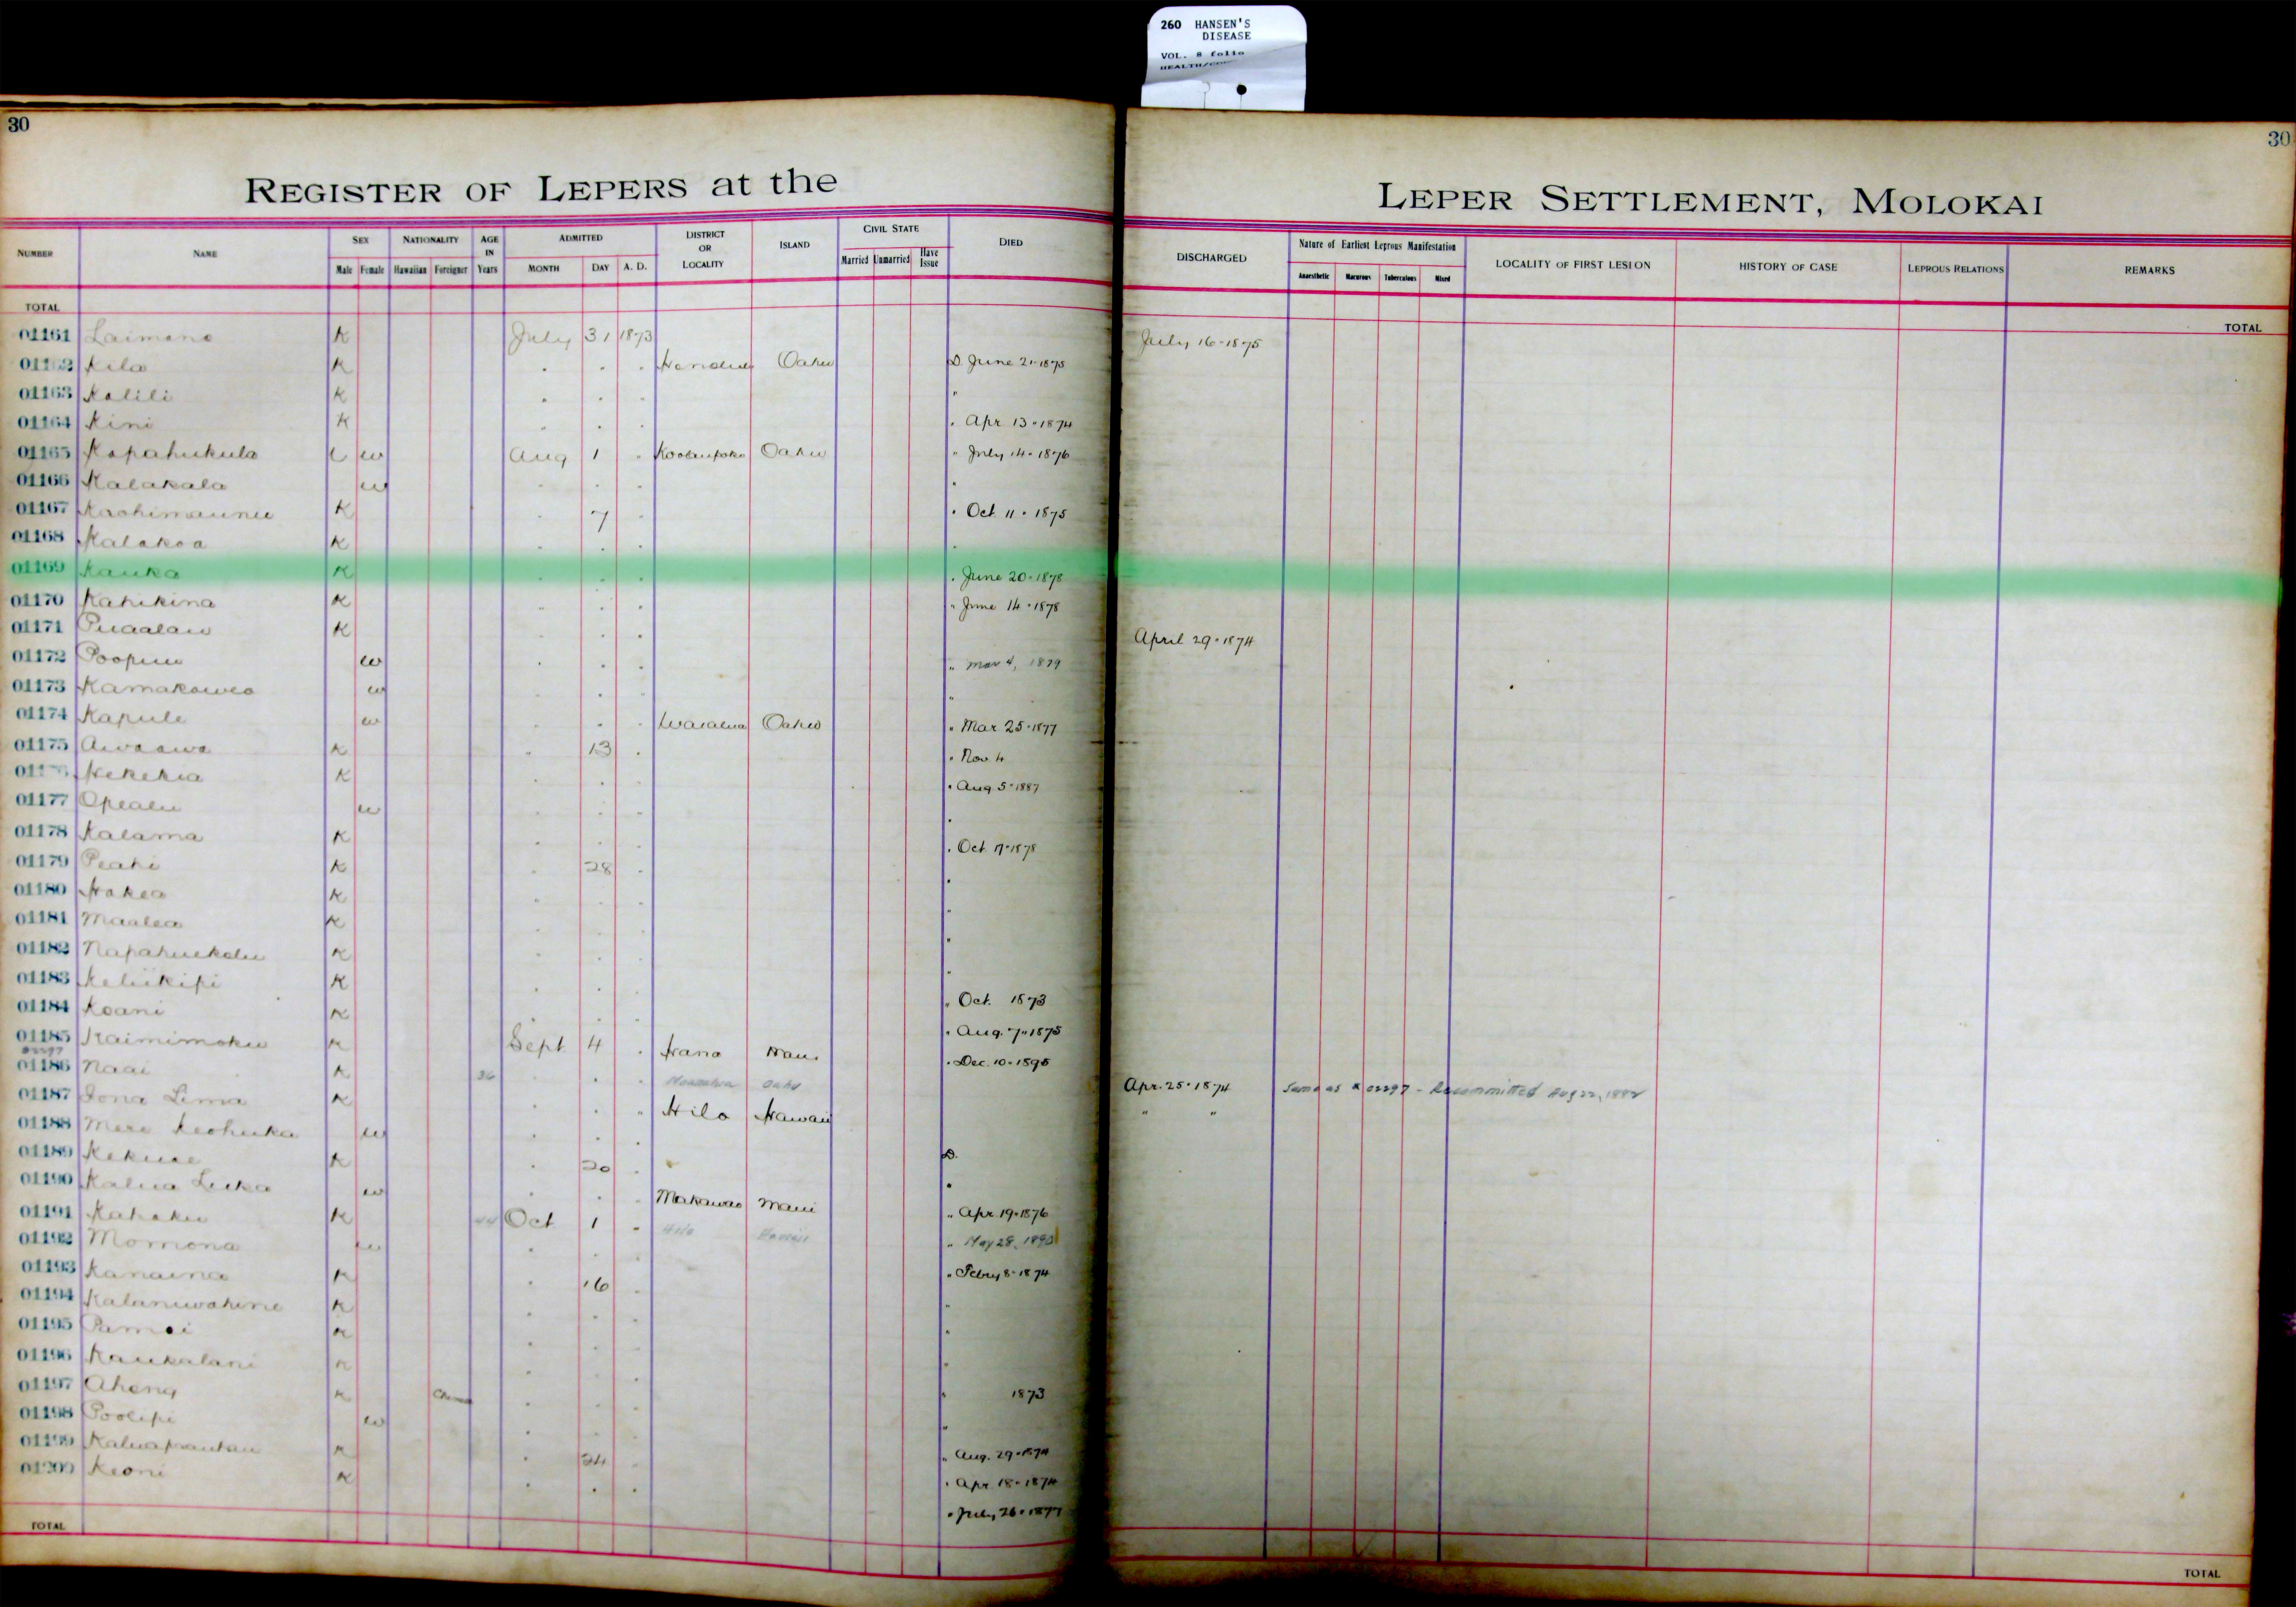 260 HANSEN'S
DISEASE
VOL. 8 folio
30
30
REGISTER OF LEPERS at the
LEPER SETTLEMENT, MOLOKAI
NUMBER NAME SEX NATIONALITY AGE IN Years ADMITTED DISTRICT OR LOCALITY ISLAND CIVIL STATE DIED
Male Female Hawaiian Foreigner MONTH DAY A. D. Married Unmarried Have Issue
DISCHARGED Nature of Earliest Leprous Manifestation LOCALITY OF FIRST LESION HISTORY OF CASE LEPROUS RELATIONS REMARKS
Anaesthetic Macurous Tuberculous Mixed
TOTAL
TOTAL
01161 Laimana K July 31 1873 July 16-1875
Kila K . . . Honolulu Oahu D. June 21-1875
01163 Kalili K . . . "
01164 Kini K . . . . Apr 13-1874
01165 Kapahukula w Aug 1 . Koolaupoko Oahu " July 14-1876
01166 Kalakala w . . . .
01167 K . 7 . . Oct 11-1875
01168 Kalakoa K . . . .
01169 Kauka K . . . . June 20-1878
01170 Kahikina K . . . " June 14-1878
01171 Puaalau K . . . April 29-1874
01172 w . . . " Mar 4, 1879
01173 Kamakawea w . . . "
01174 Kapule w . . . Waialua Oahu " Mar 25-1877
01175 Awaawa K . 13 . . Nov. 4
Kekekia K . . . . Aug 5-1887
01177 Opealu w . . . .
01178 Kalama K . . . . Oct. 17-1878
01179 Peahi K . 28 . .
01180 Hakea K . . . .
01181 Maalea K . . . .
01182 Napahuekolu K . . . "
01183 Keliikipi K . . . " Oct. 1873
01184 Koani K . . . . Aug. 7-1875
01185 Kaimimoku K Sept. 4 . Hana Maui . Dec. 10-1895
01186 Naai K 36 . . Oahu Apr. 25-1874 Same as # 02297 - Recommitted Aug 22, 1882
01187 Iona Lima K . . " Hilo Hawaii " "
01188 Mere Keohuka w . . . D.
01189 Kekuae K . 20 . .
01190 Kalua Luka w . . . Makawao Maui " Apr 19-1876
01191 Kahaku K 44 Oct 1 " Hilo Hawaii " May 28, 1890
01192 Momona w . . . " Febry 8-1874
01193 Kanaina K . 16 . "
01194 Kalaniwahine K . . . "
01195 K . . . "
01196 Kaukalani K . . .
01197 Aheng K . . . 1873
01198 Poolipi w . . . "
01199 K . 24 . " Aug. 29-1874
01200 Keoni K . . . . Apr 18-1874
. July 26-1877
TOTAL
TOTAL